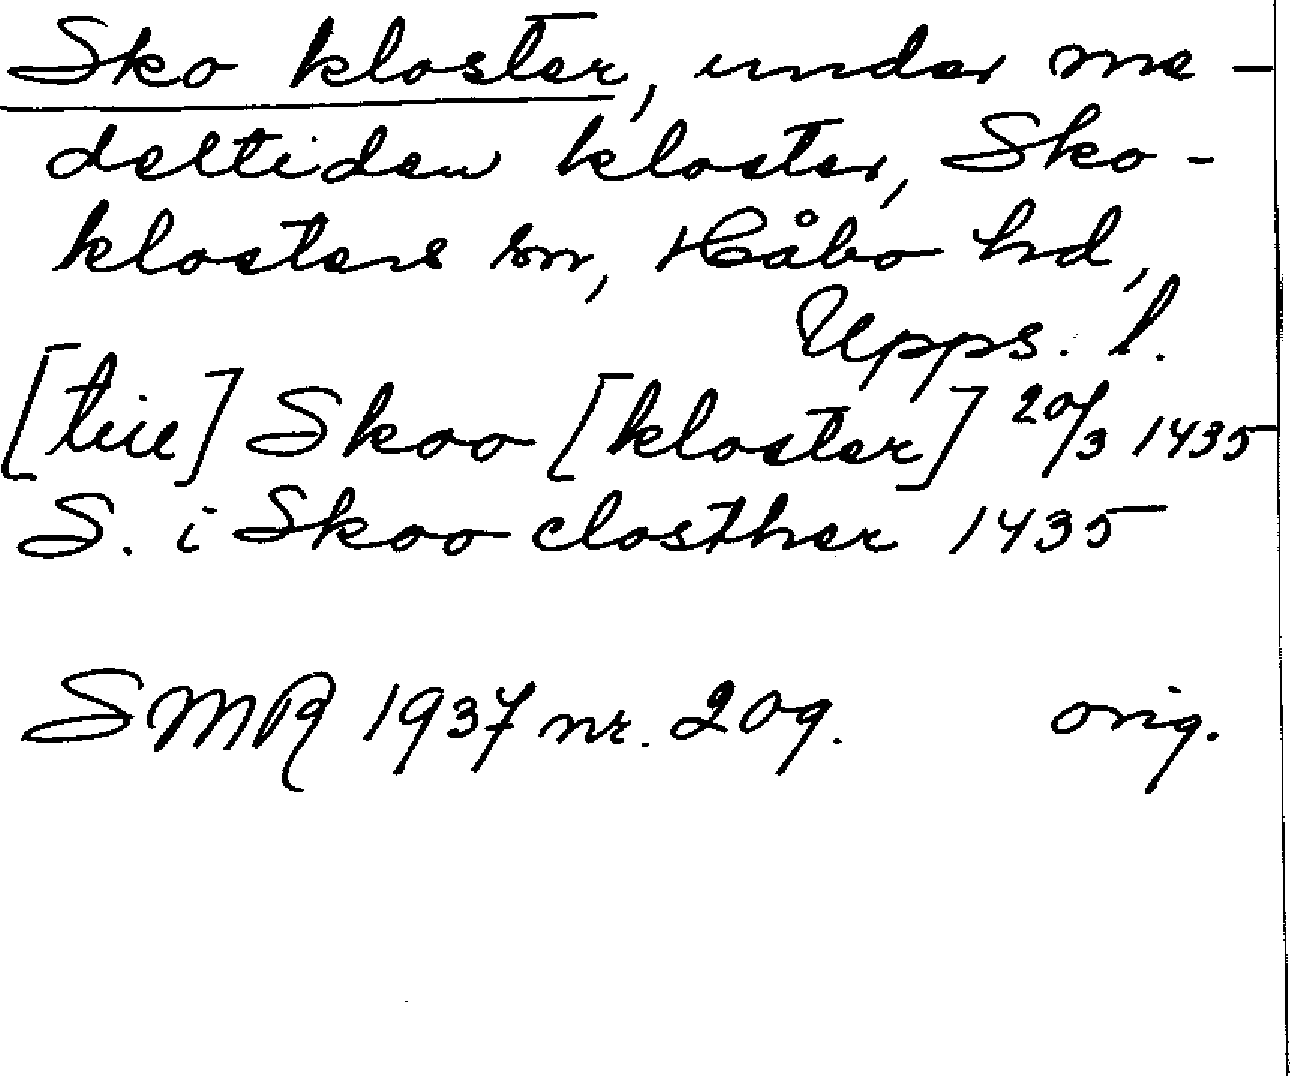 Sko kloster, under me-
deltiden kloster, Sko-
klosters sn, Håbo hd,
Upps. l.
[till] Skoo [kloster] 20/3 1435
S. i Skoo closther 1435
SMR 1937 nr. 209. orig.